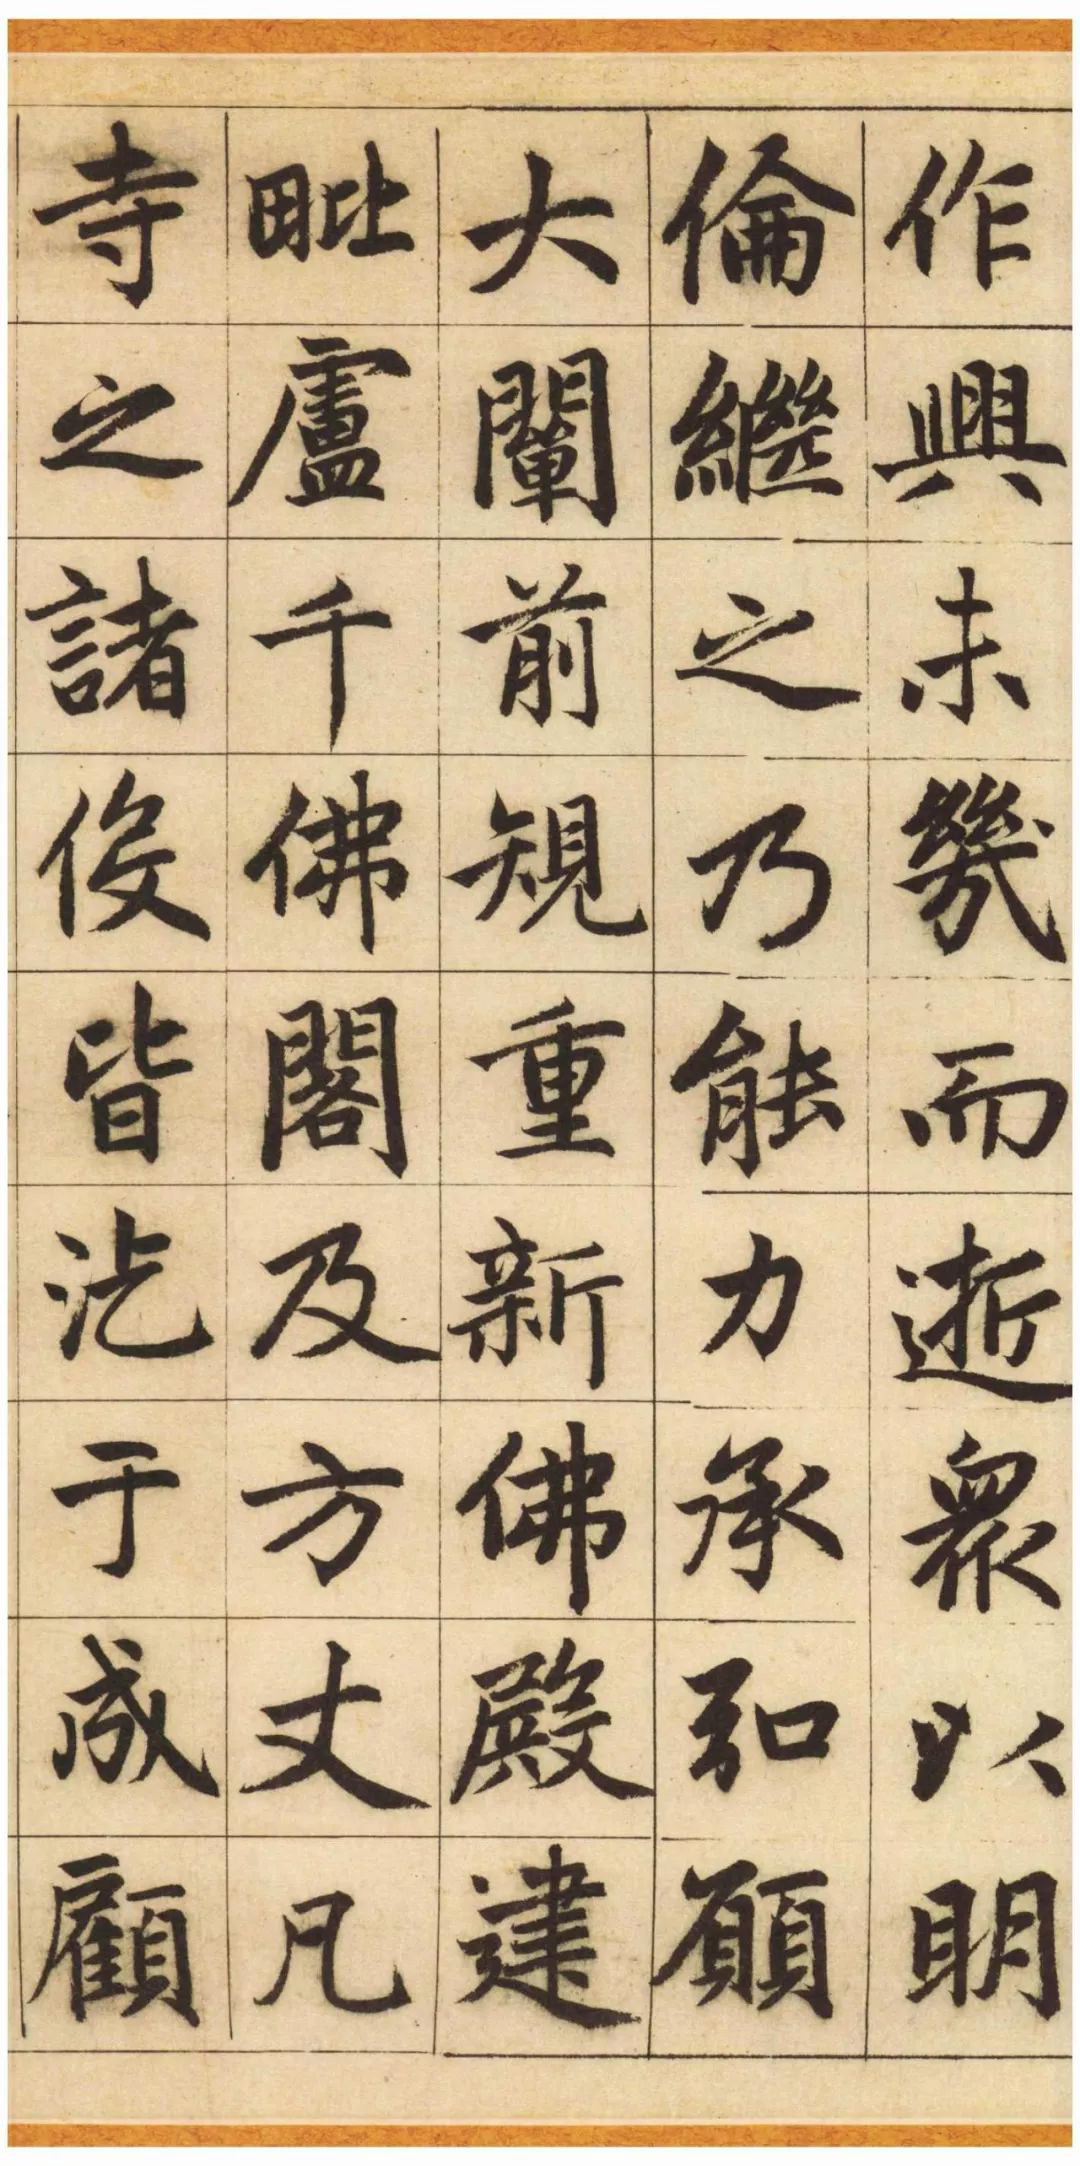 作興未幾而逝眾以明
倫繼之乃能力承弘願
大闡前規重新佛殿建
毗盧千佛閣及方丈凡
寺之諸役皆汔于成顧